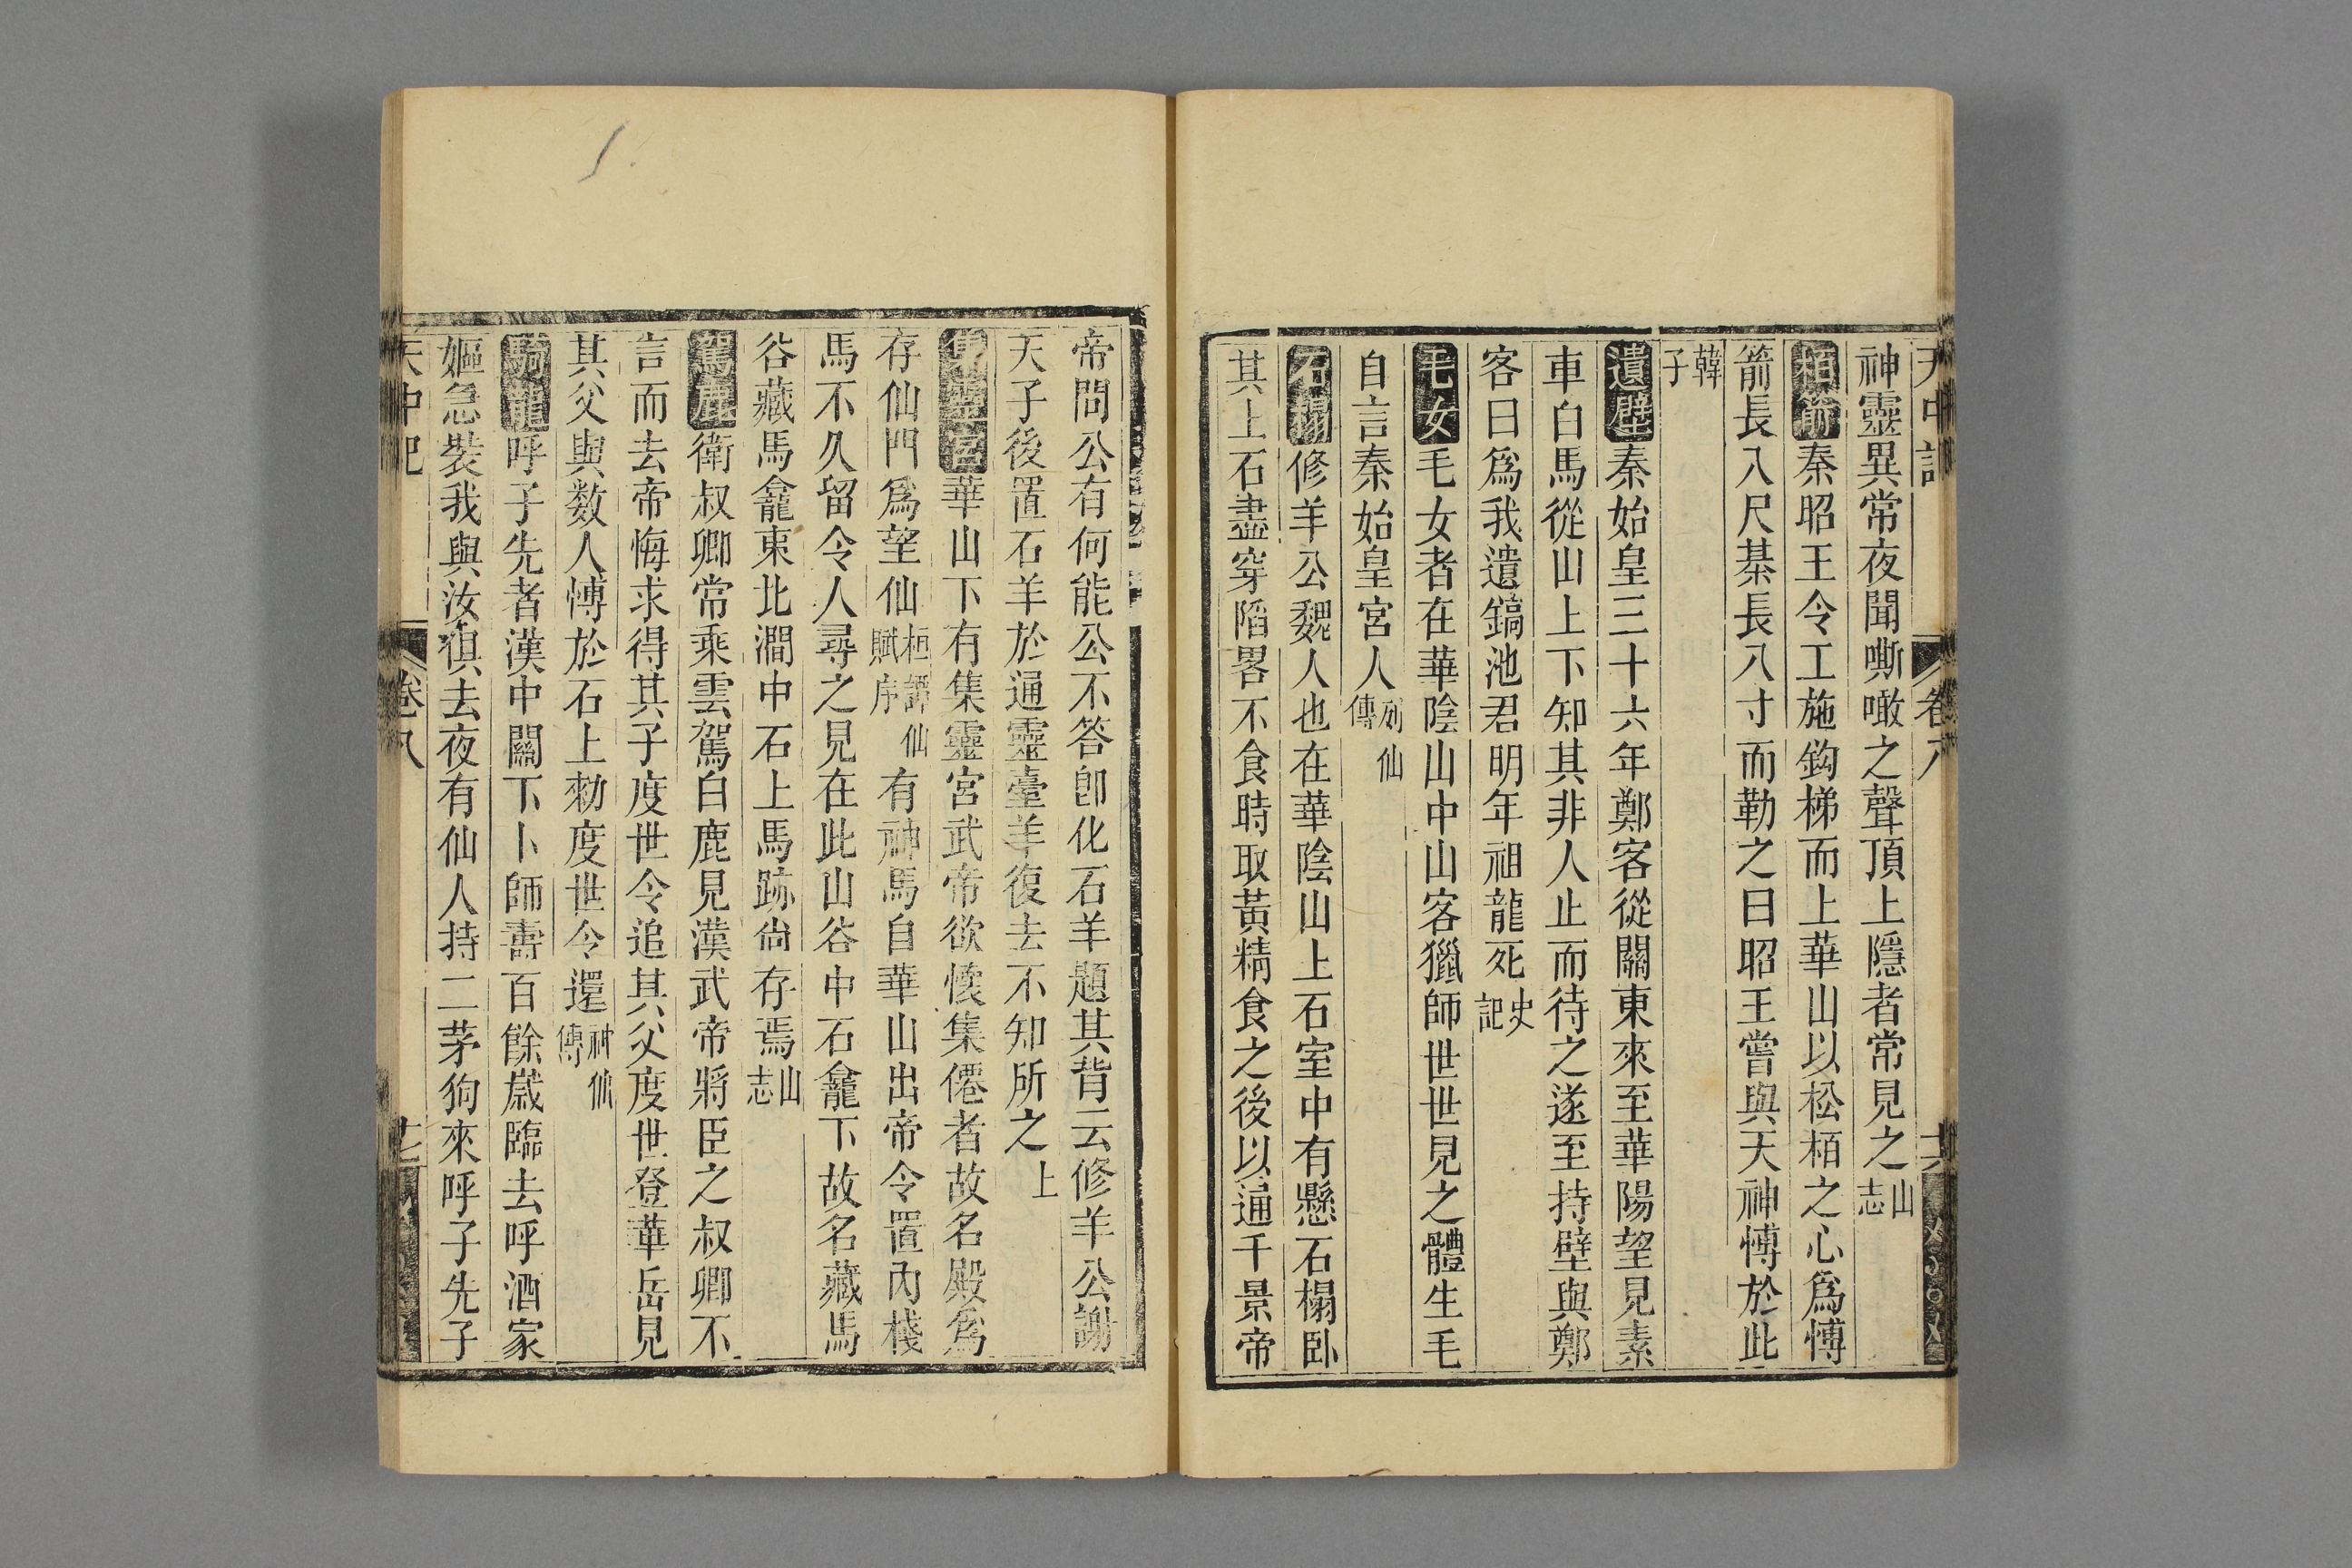 神靈異常夜聞嘶噉之聲頂上隱者常見之山志
栢箭秦昭王令工施鈎梯而上華山以松栢之心爲愽
箭長八尺棊長八寸而勒之曰昭王嘗與天神愽於此
韓子
遺璧秦始皇三十六年鄭客從關東來至華陽望見素
車白馬從山上下知其非人止而待之遂至持壁與鄭
客曰爲我遺鎬池君明年祖龍死史記
毛女毛女者在華陰山中山客獵師世世見之體生毛
自言秦始皇宮人列仙傳
石榻修羊公魏人也在華陰山上石室中有懸石榻卧
其上石盡穿陷畧不食時取黃精食之後以通千景帝
帝問公有何能公不答卽化石羊題其背云修羊公謝
天子後置石羊於通靈臺羊復去不知所之上
集靈宮華山下有集靈宮武帝欲懷集僊者故名殿爲
存仙門爲望仙桓譚仙賦序有神馬自華山出帝令置內棧
馬不久留令人尋之見在此山谷中石龕下故名藏馬
谷藏馬龕東北澗中石上馬跡尙存焉山志
駕鹿衛叔卿常乘雲駕白鹿見漢武帝將臣之叔卿不
言而去帝悔求得其子度世令追其父度世登華岳見
其父與数人愽於石上勑度世令還神仙傳
騎龍呼子先者漢中關下卜師壽百餘歲臨去呼酒家
嫗急裝我與汝俱去夜有仙人持二茅狗來呼子先子
天中記 卷八